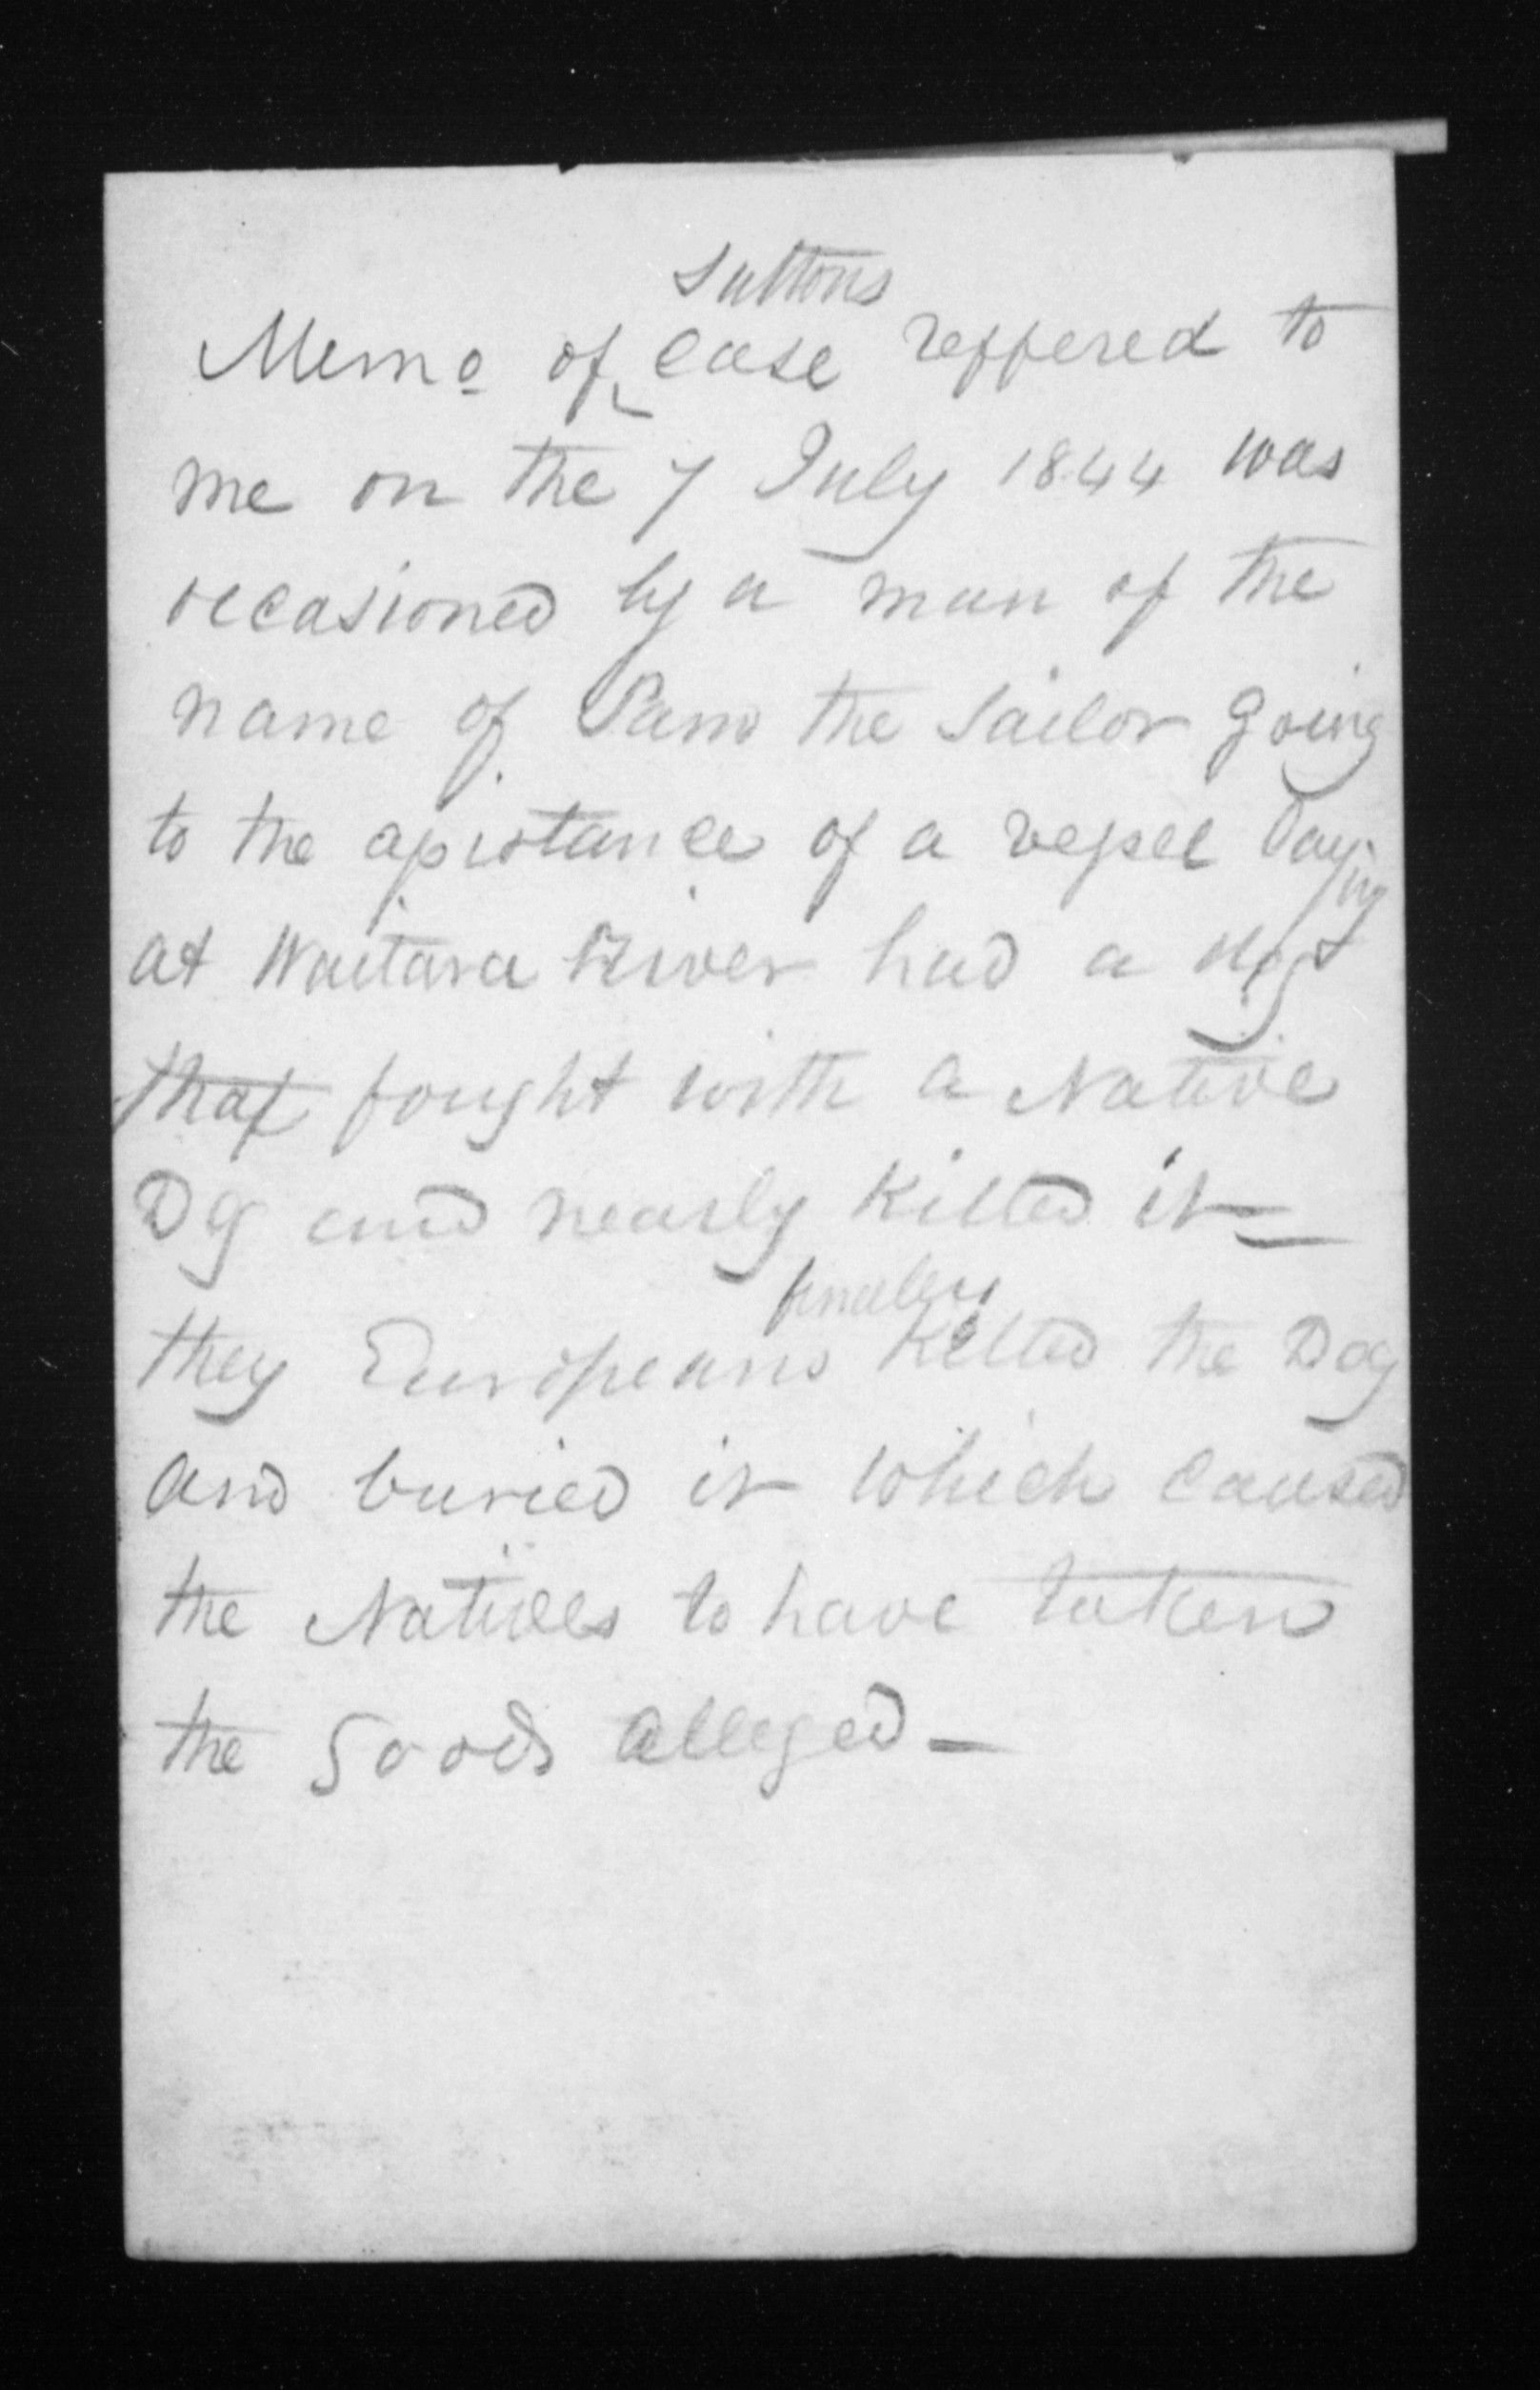 Memo of Suttons Case reffered to
me on the 7 July 1844 was
occasioned by a man of the
name of Sam the Sailor going
to the assistance of a vessel Laying
at Waitara River had a dog
that fought with a Native
Dg and nearly Killed it —
they Europeans finaley Killed the Dog
and buried it which caused
the Natives to have taken
the Goods alleged —